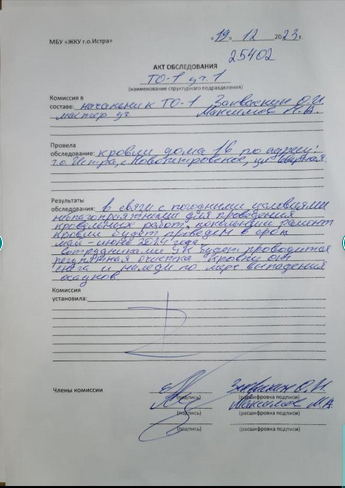 МБУ «ЖКУ г.о.Истра»
« 19 » 12 2023г.
25402
АКТ ОБСЛЕДОВАНИЯ
ТО-1 уч.1
(наименование структурного подразделения)
Комиссия в
составе: начальник ТО-1 О.И
мастер уч Максимов М.А.
Провела
обследование: кровли дома 16 по адресу:
г.о Истра, с. Новопетровское, ул
Результаты
обследования: в связи с погодными условиями
неблагоприятными для проведения
кровельных работ, локальный ремонт
кровли будет проведен в срок
май - июнь 2024 года.
Сотрудниками УК будет проводится
регулярная очистка кровли от
снега и наледи по мере выпадения
осадков.
Комиссия
установила:
Члены комиссии О.И.
(подпись) (расшифровка подписи)
Максимов М.А
(подпись) (расшифровка подписи)
(подпись) (расшифровка подписи)